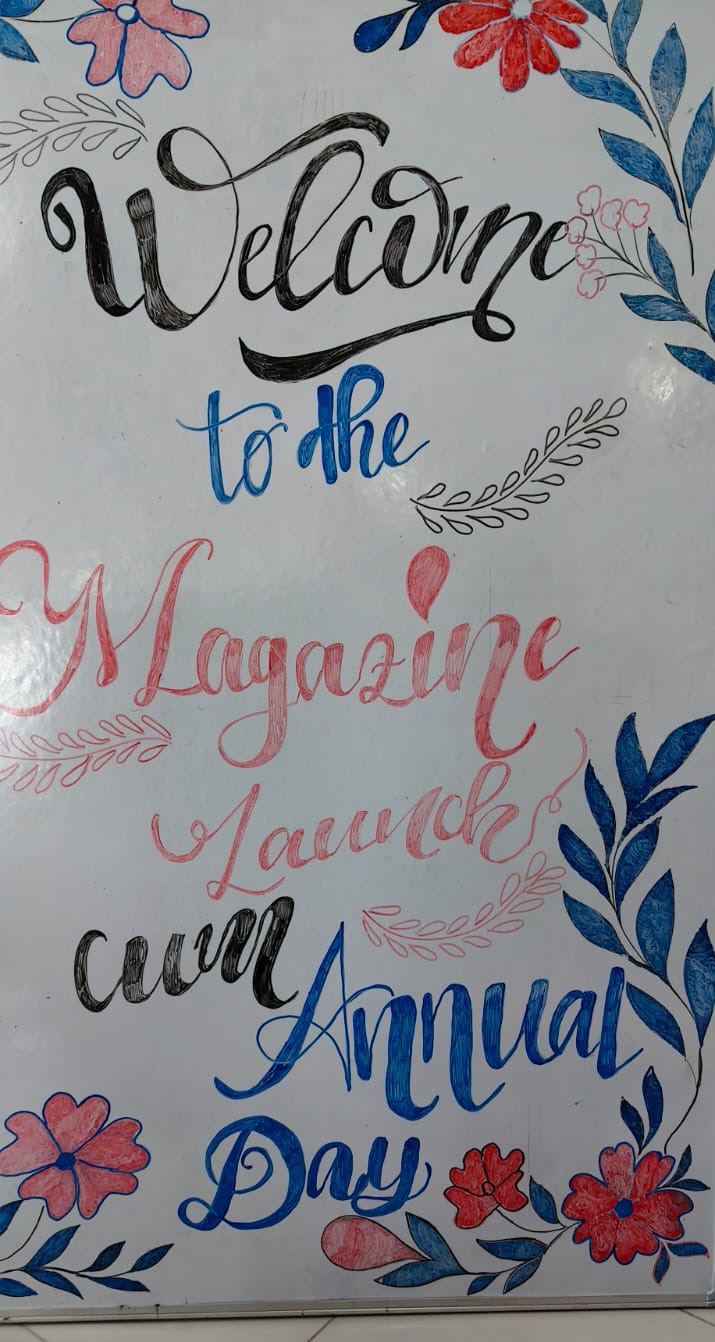 Welcome
to the
Magazine
Launch
cum
Annual
Day